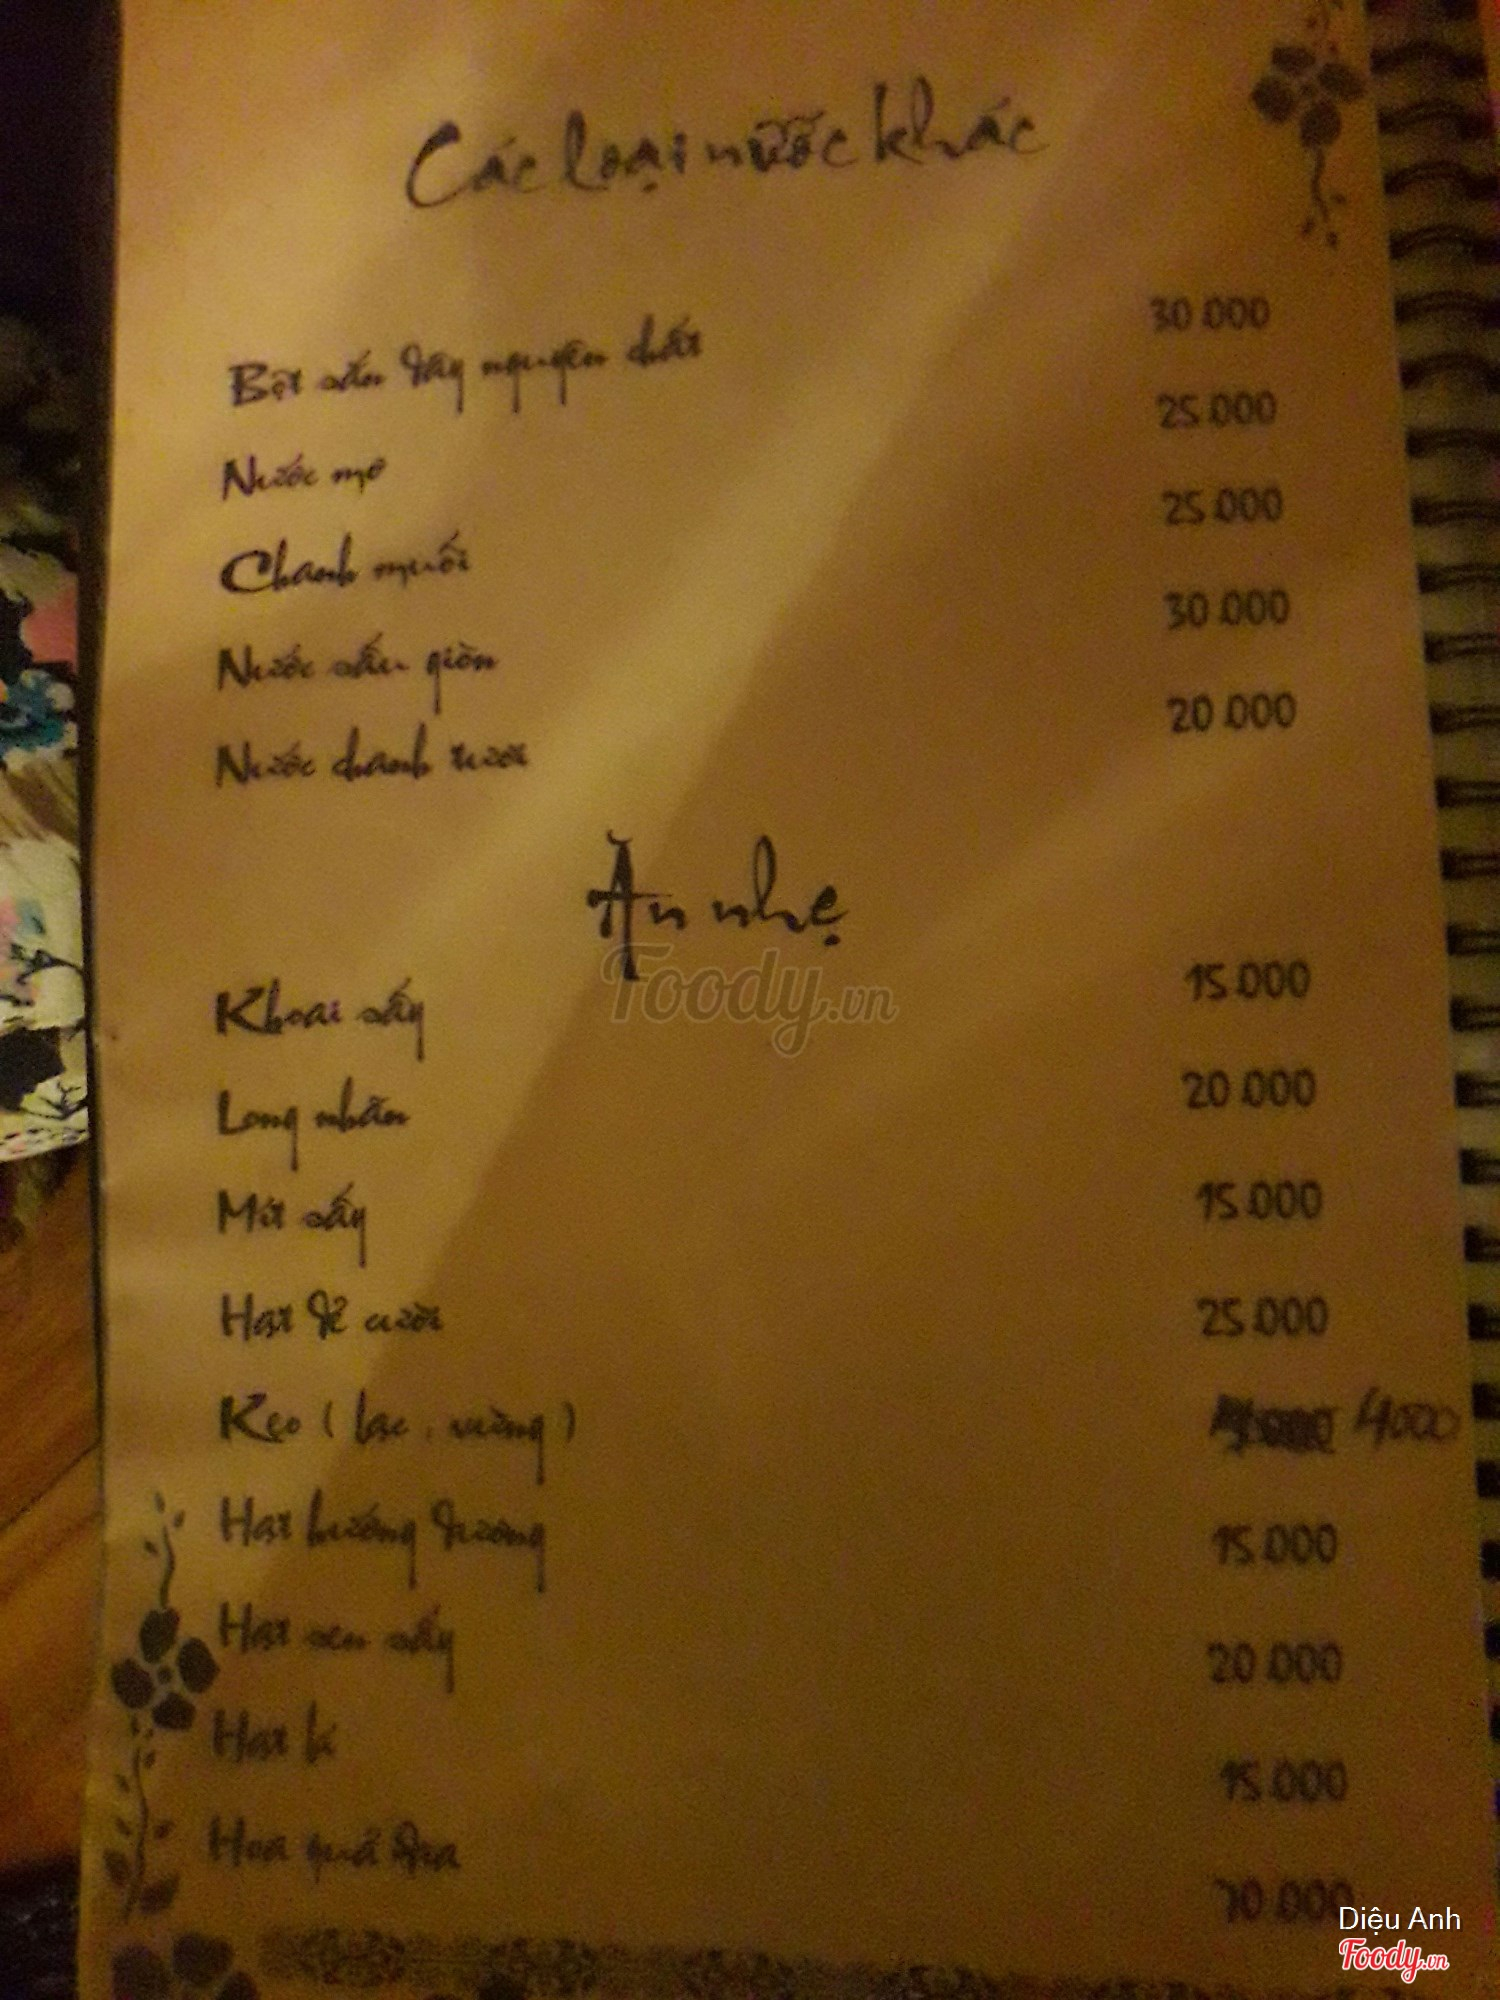 Các loại nước khác
Bột sắn dây nguyên chất 30.000
Nước mơ 25.000
Chanh muối 25.000
Nước sấu giòn 30.000
Nước chanh tươi 20.000
Ăn nhẹ
Foody.vn
Khoai sấy 15.000
Long nhãn 20.000
Mít sấy 15.000
Hạt dẻ cười 25.000
Kẹo ( lạc , vừng ) 4000
Hạt hướng dương 15.000
Hạt sen sấy 20.000
Hạt bí 15.000
Hoa quả dĩa
Diệu Anh
Foody.vn